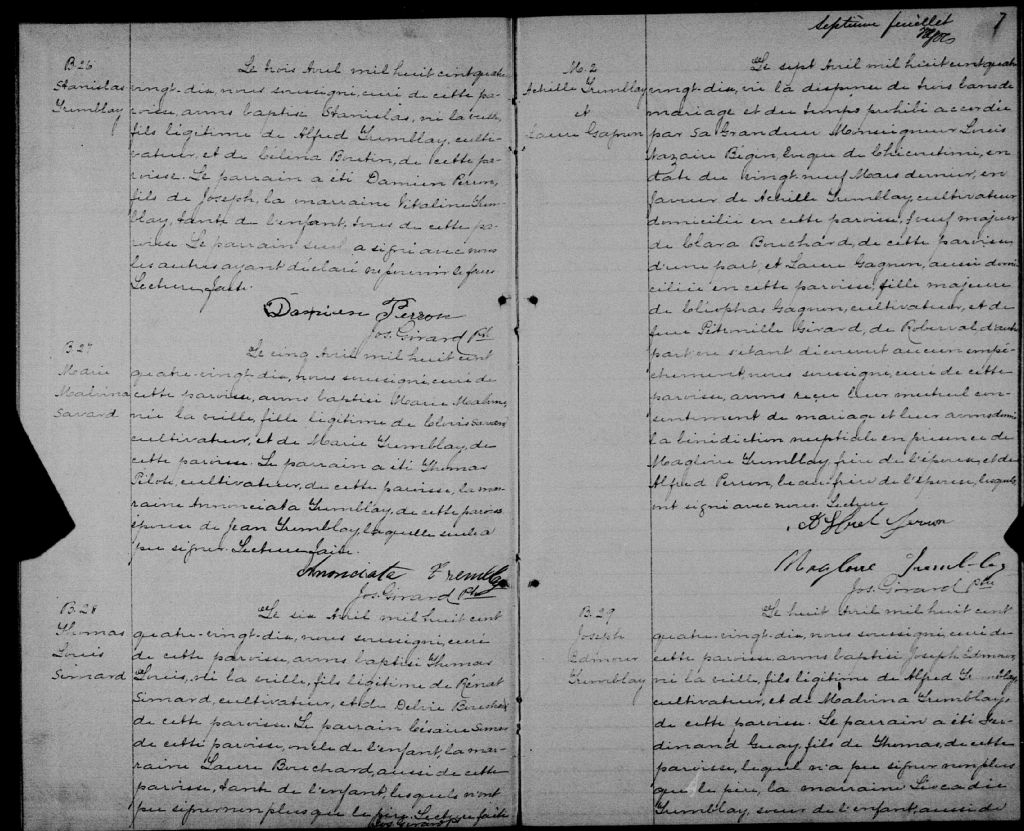 B.26
Stanislas
Tremblay
Le trois Avril mil huit cent quatre
vingt-dix, nous soussigné, curé de cette pa-
roisse, avons baptisé Stanislas, né la veille,
fils légitime de Alfred Tremblay, culti-
vateur, et de Célina Boutin, de cette pa-
roisse. Le parrain a été Damien Perron,
fils de Joseph, la marraine Vitaline Trem-
blay, tante de l'enfant, tous de cette pa-
roisse. Le parrain seul a signé avec nous
les autres ayant déclaré ne pouvoir le faire
Lecture faite.
Damien Perron
Jos. Girard Ptre
B.27
Marie
Malvina
Savard
Le cinq Avril mil huit cent
quatre-vingt-dix, nous soussigné, curé de
cette paroisse, avons baptisé Marie Malvina,
née la veille, fille légitime de Clovis Savard
cultivateur, et de Marie Tremblay, de
cette paroisse. Le parrain a été Thomas
Pilote, cultivateur, de cette paroisse, la mar-
raine Annonciata Tremblay, de cette paroisse
épouse de Jean Tremblay, laquelle seule a
pu signer. Lecture faite.
Annonciata Tremblay
Jos. Girard Ptre
B.28
Thomas
Louis
Simard
Le six Avril mil huit cent
quatre-vingt-dix, nous soussigné, curé
de cette paroisse, avons baptisé Thomas
Louis, né la veille, fils légitime de Rénat
Simard, cultivateur, et de Delvie Bouchard
de cette paroisse. Le parrain Césaire Simard
de cette paroisse, oncle de l'enfant, la mar-
raine Laure Bouchard, aussi de cette
paroisse, tante de l'enfant, lesquels n'ont
pu signer non plus que le père. Lecture faite
Jos. Girard P
Septième feuillet 7
M.2
Achille Tremblay
et
Laure Gagnon
Le sept Avril mil huit cent quatre
vingt-dix, vu la dispense de trois bans de
mariage et du temps prohibé accordée
par Sa Grandeur Monseigneur Louis
Nazaire Bégin, Evêque de Chicoutimi, en
date du vingt-neuf Mars dernier, en
faveur de Achille Tremblay, cultivateur
domicilié en cette paroisse, veuf majeur
de Clara Bouchard, de cette paroisse,
d'une part, et Laure Gagnon, aussi domi-
ciliée en cette paroisse, fille majeure
de Cléophas Gagnon, cultivateur, et de
feue Pétronille Girard, de Roberval d'autre
part; ne s'étant découvert aucun empê-
chement, nous soussigné, curé de cette
paroisse, avons reçu leur mutuel con-
sentement de mariage et leur avons donné
la bénédiction nuptiale en présence de
Magloire Tremblay, frère de l'époux, et de
Alfred Perron, beau-frère de l'épouse, lesquels
ont signé avec nous. Lecture
Alfred Perron
Magloire Tremblay
Jos. Girard Ptre
B.29
Joseph
Edmour
Tremblay
Le huit Avril mil huit cent
quatre-vingt-dix, nous soussigné, curé de
cette paroisse, avons baptisé Joseph Edmour,
né la veille, fils légitime de Alfred Tremblay,
cultivateur, et de Malvina Tremblay
de cette paroisse. Le parrain a été Fer-
dinand Guay, fils de Thomas, de cette
paroisse, lequel n'a pu signer non plus
que le père, la marraine Léocadie
Tremblay, sœur de l'enfant, aussi de